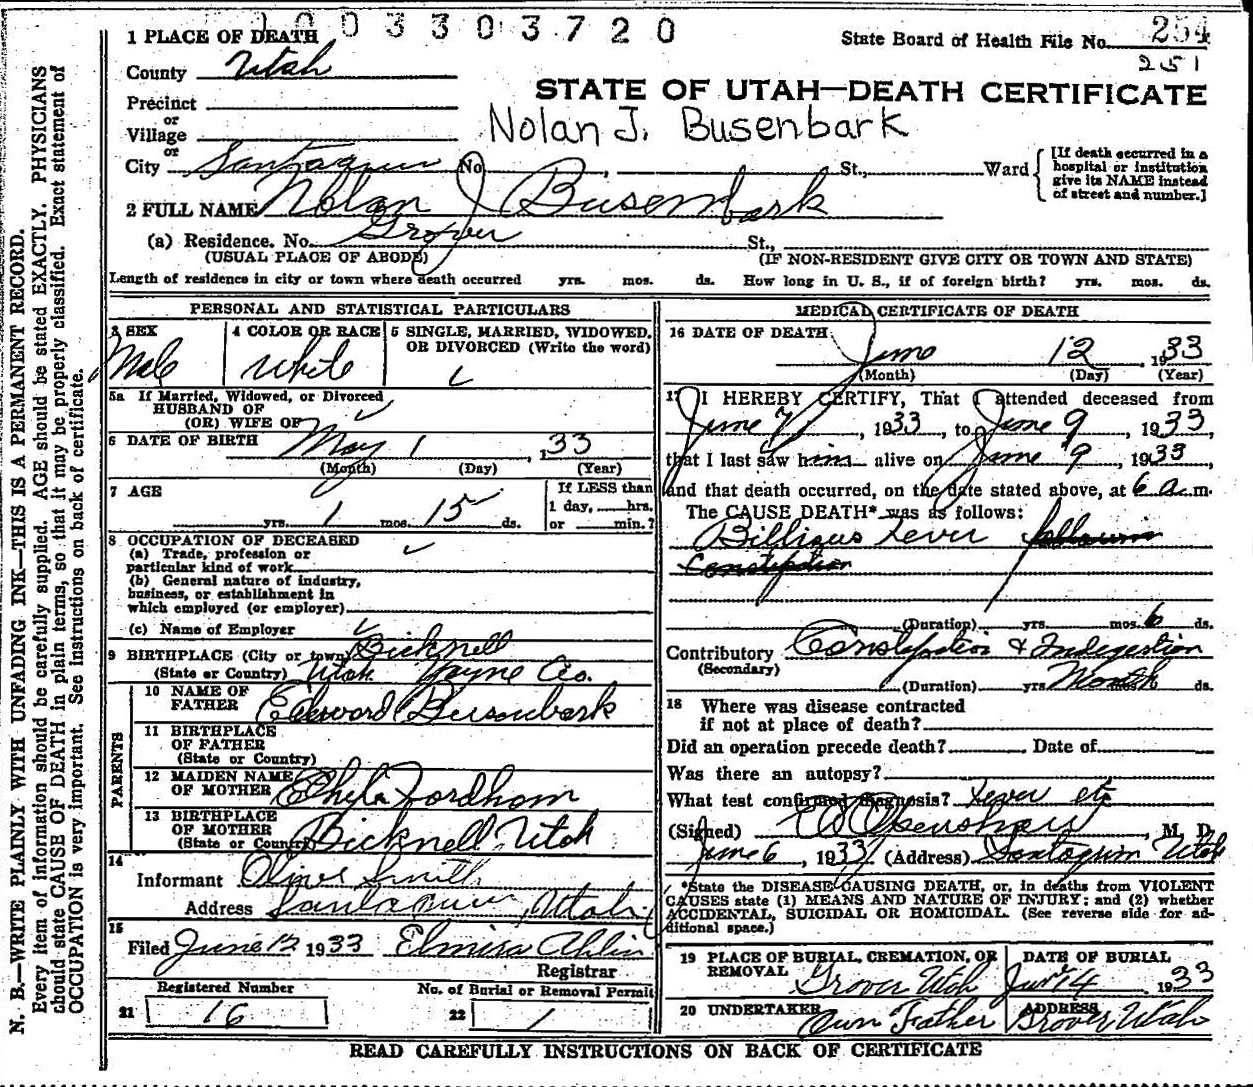 1003303720
1 PLACE OF DEATH
State Board of Health File No. 254
251
County Utah
STATE OF UTAH—DEATH CERTIFICATE
Precinct
or
Village
Nolan J. Busenbark
or
City Santaquin No. , St., Ward
[If death occurred in a
hospital or institution
give its NAME instead
of street and number.]
2 FULL NAME Nolan J Busenbark
(a) Residence. No. Grover St.,
(USUAL PLACE OF ABODE) (IF NON-RESIDENT GIVE CITY OR TOWN AND STATE)
Length of residence in city or town where death occurred yrs. mos. ds. How long in U. S., if of foreign birth? yrs. mos. ds.
PERSONAL AND STATISTICAL PARTICULARS
3 SEX
Male
4 COLOR OR RACE
White
5 SINGLE, MARRIED, WIDOWED,
OR DIVORCED (Write the word)
5a If Married, Widowed, or Divorced
HUSBAND OF
(OR) WIFE OF
6 DATE OF BIRTH May 1, 133
(Month) (Day) (Year)
7 AGE
yrs. 1 mos. 15 ds.
If LESS than
1 day, hrs.
or min.?
8 OCCUPATION OF DECEASED
(a) Trade, profession or
particular kind of work
(b) General nature of industry,
business, or establishment in
which employed (or employer)
(c) Name of Employer
9 BIRTHPLACE (City or town) Bicknell
(State or Country) Utah Wayne Co.
PARENTS
10 NAME OF
FATHER Edward Busenbark
11 BIRTHPLACE
OF FATHER
(State or Country)
12 MAIDEN NAME
OF MOTHER Fordham
13 BIRTHPLACE
OF MOTHER
(State or Country) Bicknell Utah
14
Informant Smith
Address Santaquin, Utah
15
Filed June 12 1933 Elmira Ahlin
Registrar
Registered Number
21 16
No. of Burial or Removal Permit
22 1
MEDICAL CERTIFICATE OF DEATH
16 DATE OF DEATH
June 12, 1933
(Month) (Day) (Year)
17 I HEREBY CERTIFY, That I attended deceased from
June 7, 1933, to June 9, 1933,
that I last saw him alive on June 9, 1933,
and that death occurred, on the date stated above, at 6 a.m.
The CAUSE DEATH* was as follows:
Billious Fever
Constipation
(Duration) yrs. mos. 6 ds.
Contributory Constipation & Indigestion
(Secondary)
(Duration) yrs Month ds.
18 Where was disease contracted
if not at place of death?
Did an operation precede death? Date of
Was there an autopsy?
What test confirmed diagnosis? Fever etc
(Signed) , M. D.
June 6, 1933 (Address) Santaquin Utah
*State the DISEASE CAUSING DEATH, or, in deaths from VIOLENT
CAUSES state (1) MEANS AND NATURE OF INJURY; and (2) whether
ACCIDENTAL, SUICIDAL OR HOMICIDAL. (See reverse side for ad-
ditional space.)
19 PLACE OF BURIAL, CREMATION, OR
REMOVAL Grover Utah
DATE OF BURIAL
June 14, 1933
20 UNDERTAKER
Own Father
ADDRESS
Grover Utah
READ CAREFULLY INSTRUCTIONS ON BACK OF CERTIFICATE
N. B.—WRITE PLAINLY WITH UNFADING INK—THIS IS A PERMANENT RECORD.
Every item of information should be carefully supplied. AGE should be stated EXACTLY. PHYSICIANS
should state CAUSE OF DEATH in plain terms, so that it may be properly classified. Exact statement of
OCCUPATION is very important. See instructions on back of certificate.